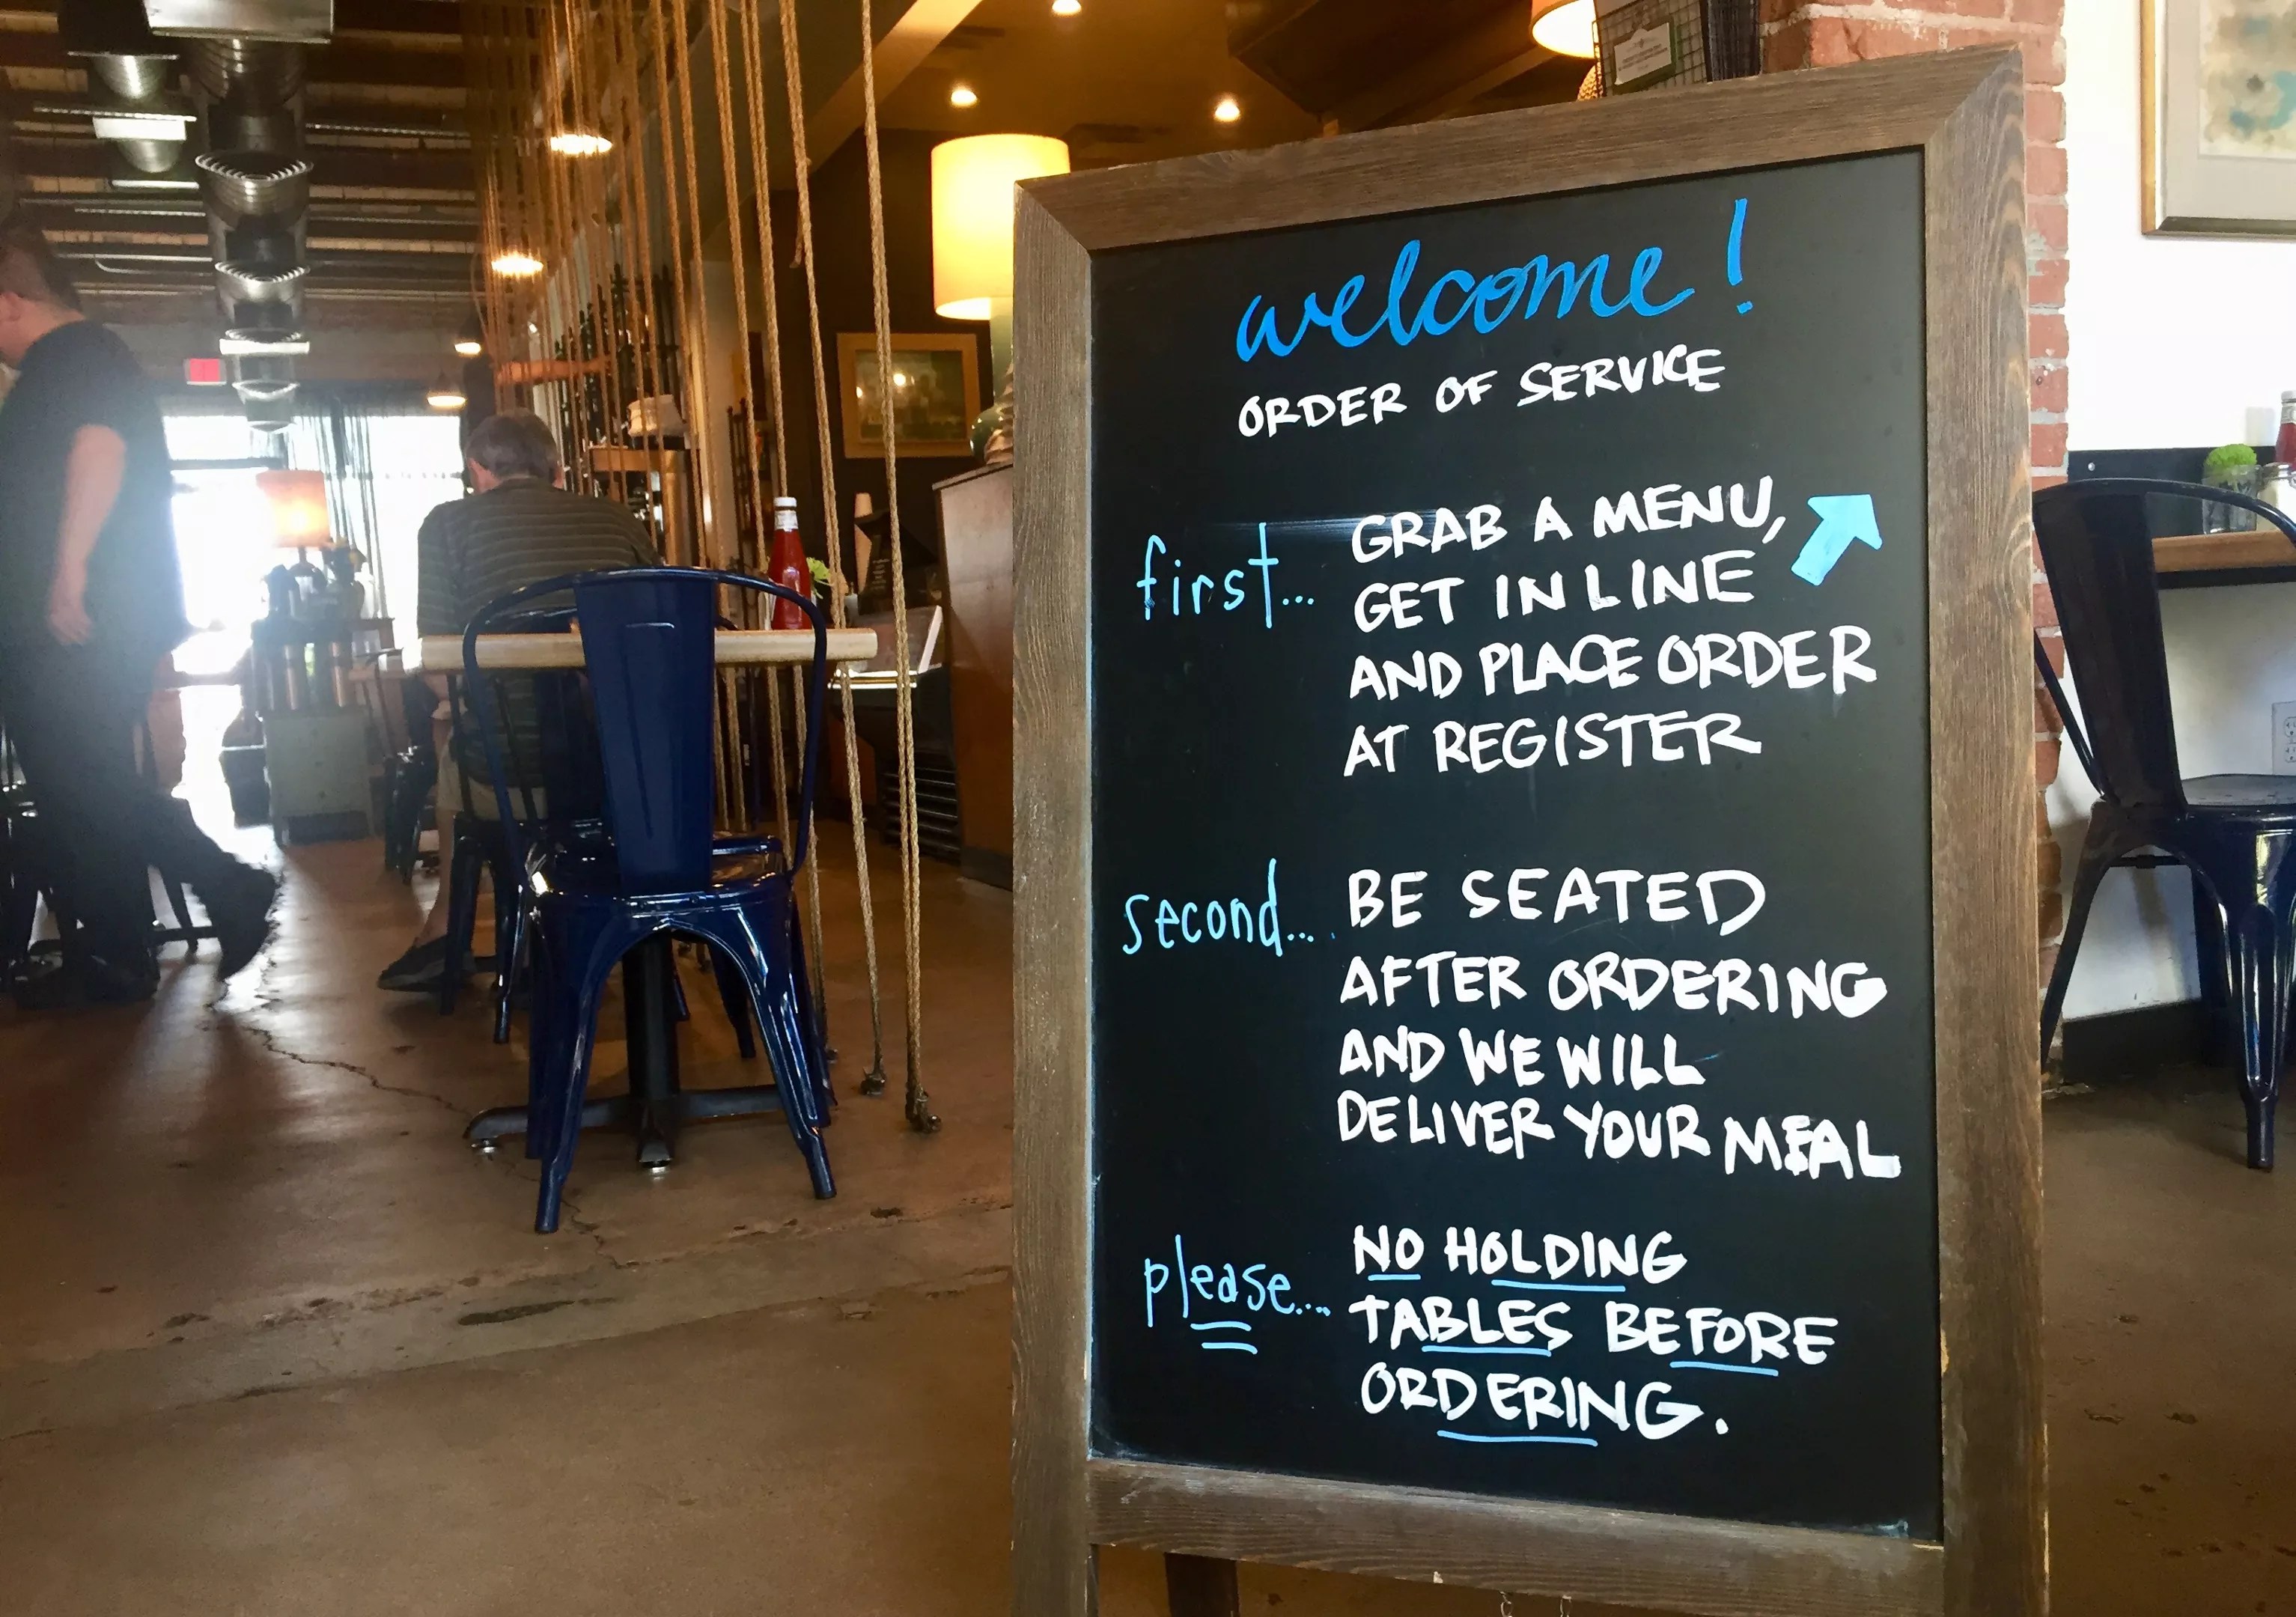 welcome!
ORDER OF SERVICE
first... GRAB A MENU,
GET IN LINE
AND PLACE ORDER
AT REGISTER
second... BE SEATED
AFTER ORDERING
AND WE WILL
DELIVER YOUR MEAL
please.... NO HOLDING
TABLES BEFORE
ORDERING.